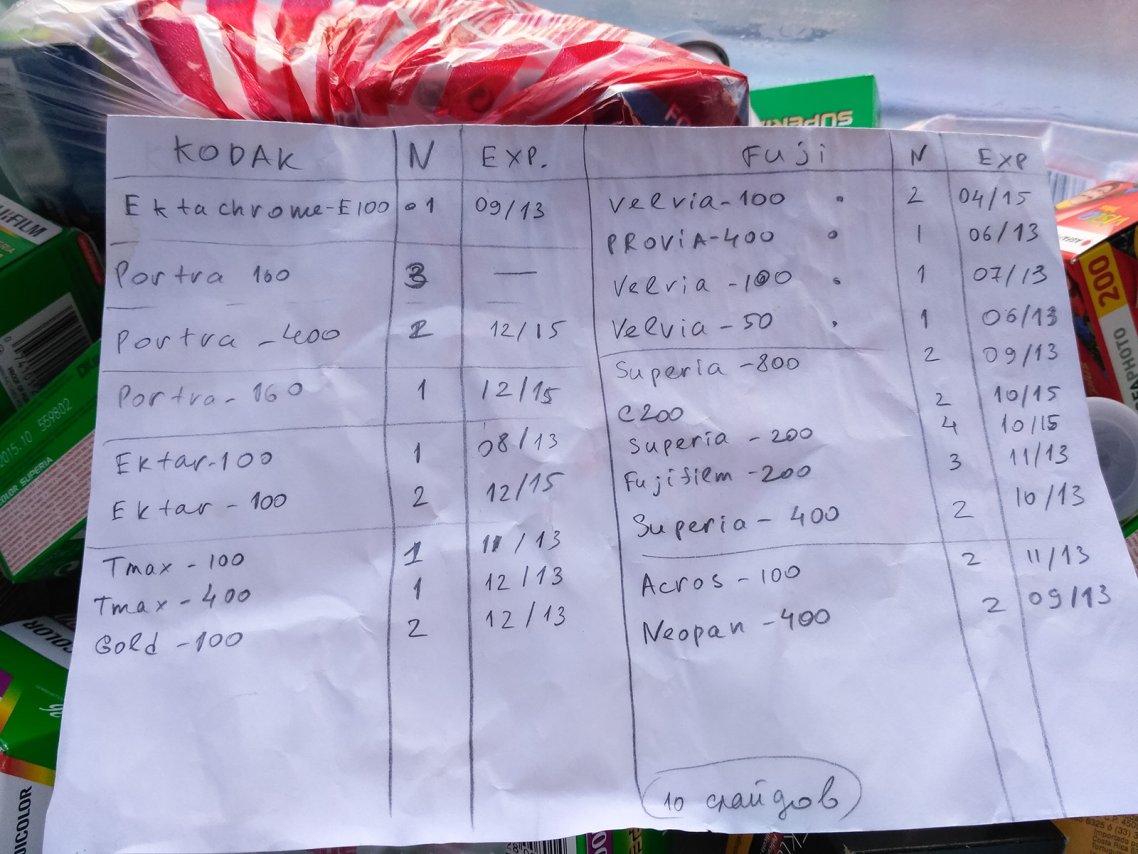 KODAK N EXP. Fuji N EXP
Ektachrome-E100 1 09/13
Portra 160 3 —
Portra - 400 2 12/15
Portra - 160 1 12/15
Ektar-100 1 08/13
Ektar - 100 2 12/15
Tmax - 100 1 11/13
Tmax - 400 1 12/13
Gold - 100 2 12/13
Velvia-100 2 04/15
PROViA-400 1 06/13
Velvia -100 1 07/13
Velvia - 50 1 06/13
Superia -800 2 09/13
C200 2 10/15
Superia - 200 4 10/15
Fujifilm -200 3 11/13
Superia - 400 2 10/13
Acros - 100 2 11/13
Neopan -400 2 09/13
10 слайдов
SUPERI
2015.10 559802
COLOR SUPERIA
200